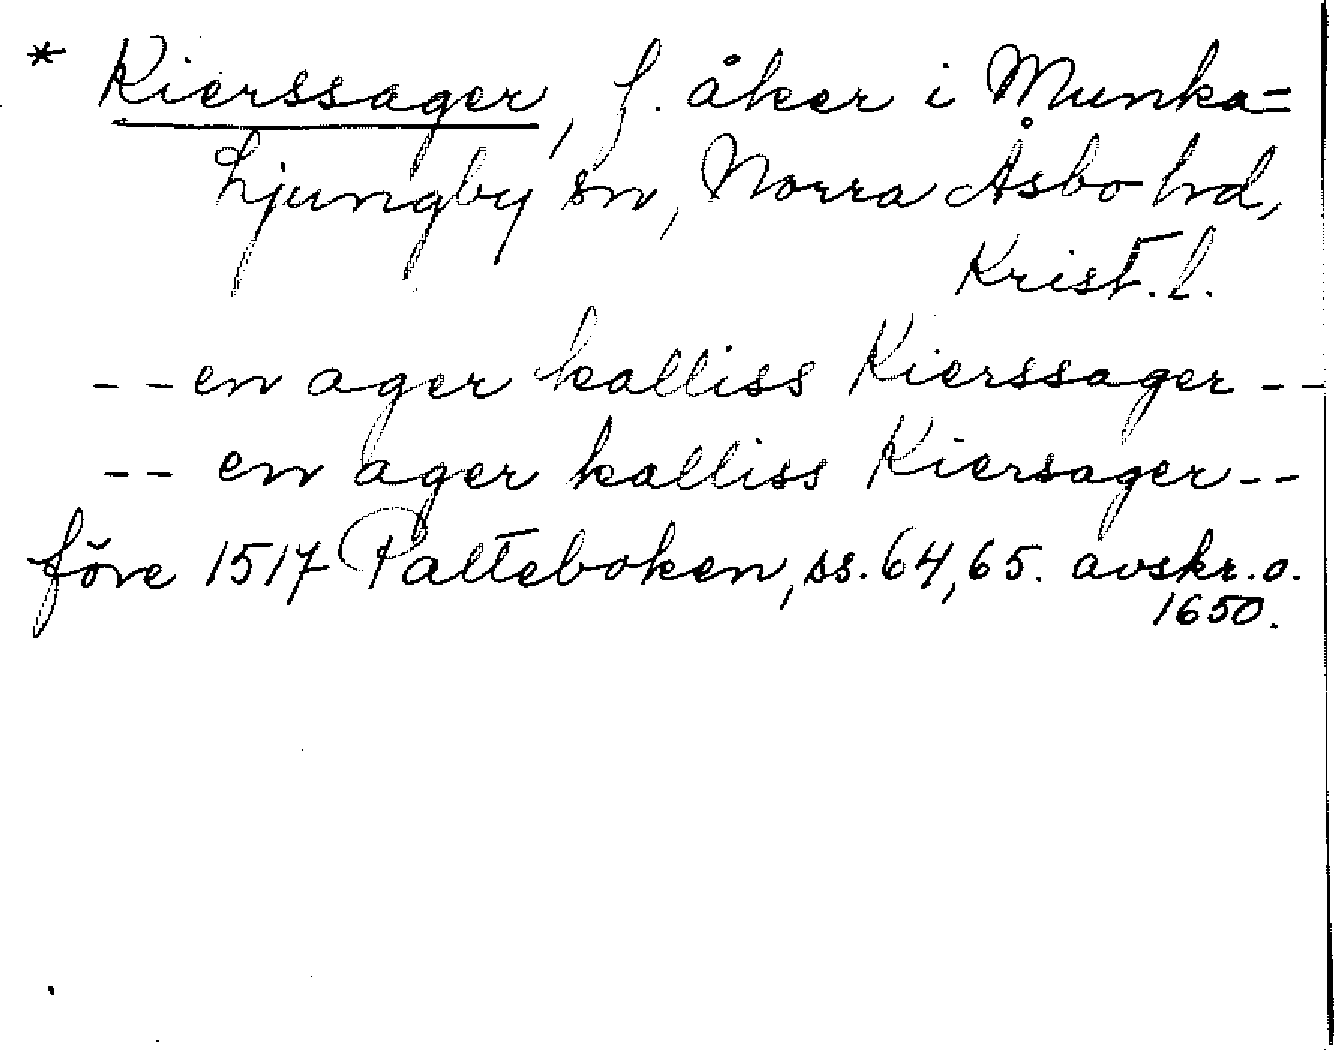 * Kierssager, f. åker i Munka=
Ljungby sn, Norra Åsbo hd,
Krist. l.
-- en ager kalliss Kierssager --
-- en ager kalliss Kiersager --
före 1517 Palteboken, ss. 64, 65. avskr. o.
1650.